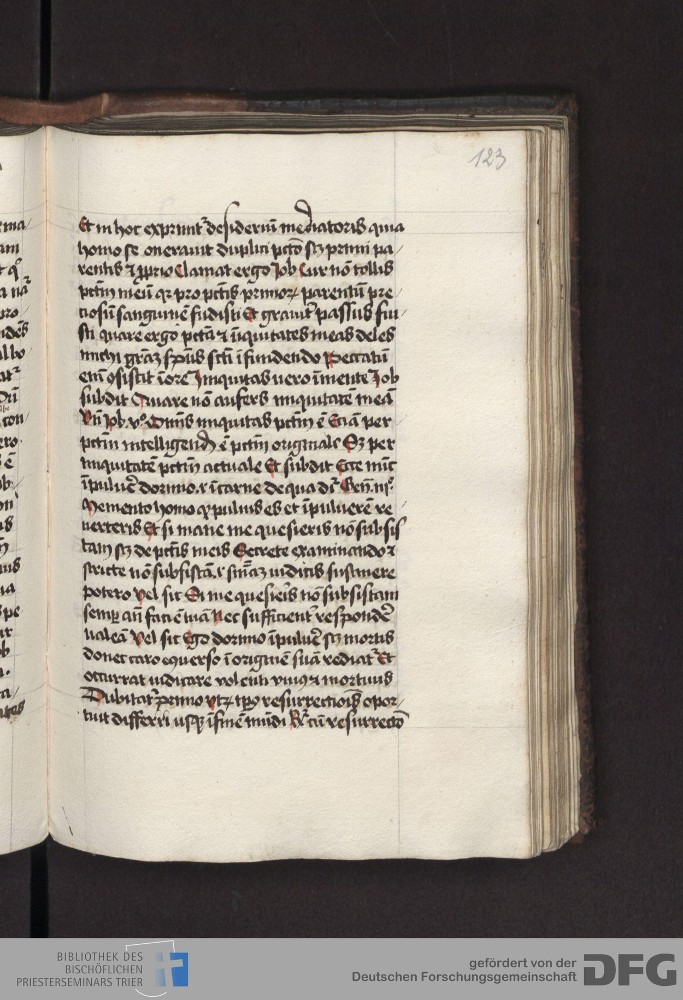 123
Et in hoc exprimit᷑ desideriū mediatoris quia
homo se onerauit duplici pctō scꝫ primi pa/
rentis ⁊ ꝓprio Clamat ergo Job Cur nō tollis
pctm̄ meū qr pro pctīs primoꝝ parentū pre/
ciosū sanguinē fudisti Et grauit᷑ passus fui/
sti quare ergo pctā ⁊ īiquitates meas deles
michi grām spūs scti īfundendo Peccatū
eni ↄsistit ī ore Iniquitas vero ī mente Job
subdit Quare nō aufers iniquitatē meā
Vn̄ Joh v° Omīs iniquitas pctm̄ ē Etiā per
pctm̄ intelligend ē pctm̄ originale Sꝫ per
iniquitatē pctm̄ actuale Et subdit Ecce nūc
ī puluē dormio .i. ī carne de qua dr̄ Gen̄ iiiº
Memento homo qꝫ puluis es et ī puluerē re/
uerteris Et si mane me quesieris nō subsis
tam scꝫ de pctīs meis Secrete examinando ⁊
stricte nō subsistā .i. sniaꝫ iudicis sustinere
potero Vel sic Si me quesieris nō subsistam
semꝑ an̄ faciē tuā Nec sufficient᷑ respondē
valeā Vel sic Ego dormio ī puluē scꝫ mortis
donec caro ↄuerso ī originē suā rediat᷑ Et
occurrat iudicare volenti viuos ⁊ mortuos
Dubitat᷑ primo vtꝝ tꝑs resurrectiois opor/
tuit differri usqꝫ ī finē mūdi Rͬ cū resurrectō
BIBLIOTHEK DES
BISCHÖFLICHEN
PRIESTERSEMINARS TRIER
gefördert von der
Deutschen Forschungsgemeinschaft
DFG